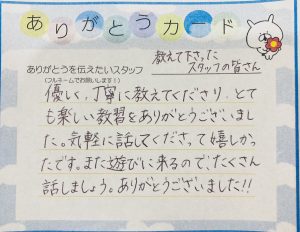 ありがとうカード
教えて下さった
スタッフの皆さん
ありがとうを伝えたいスタッフ
(フルネームでお願いします!)
優しく、丁寧に教えてくださり、とて
も楽しい教習をありがとうございまし
た。気軽に話してくださって嬉しかっ
たです。また遊びに来るので、たくさん
話しましょう。ありがとうございました!!